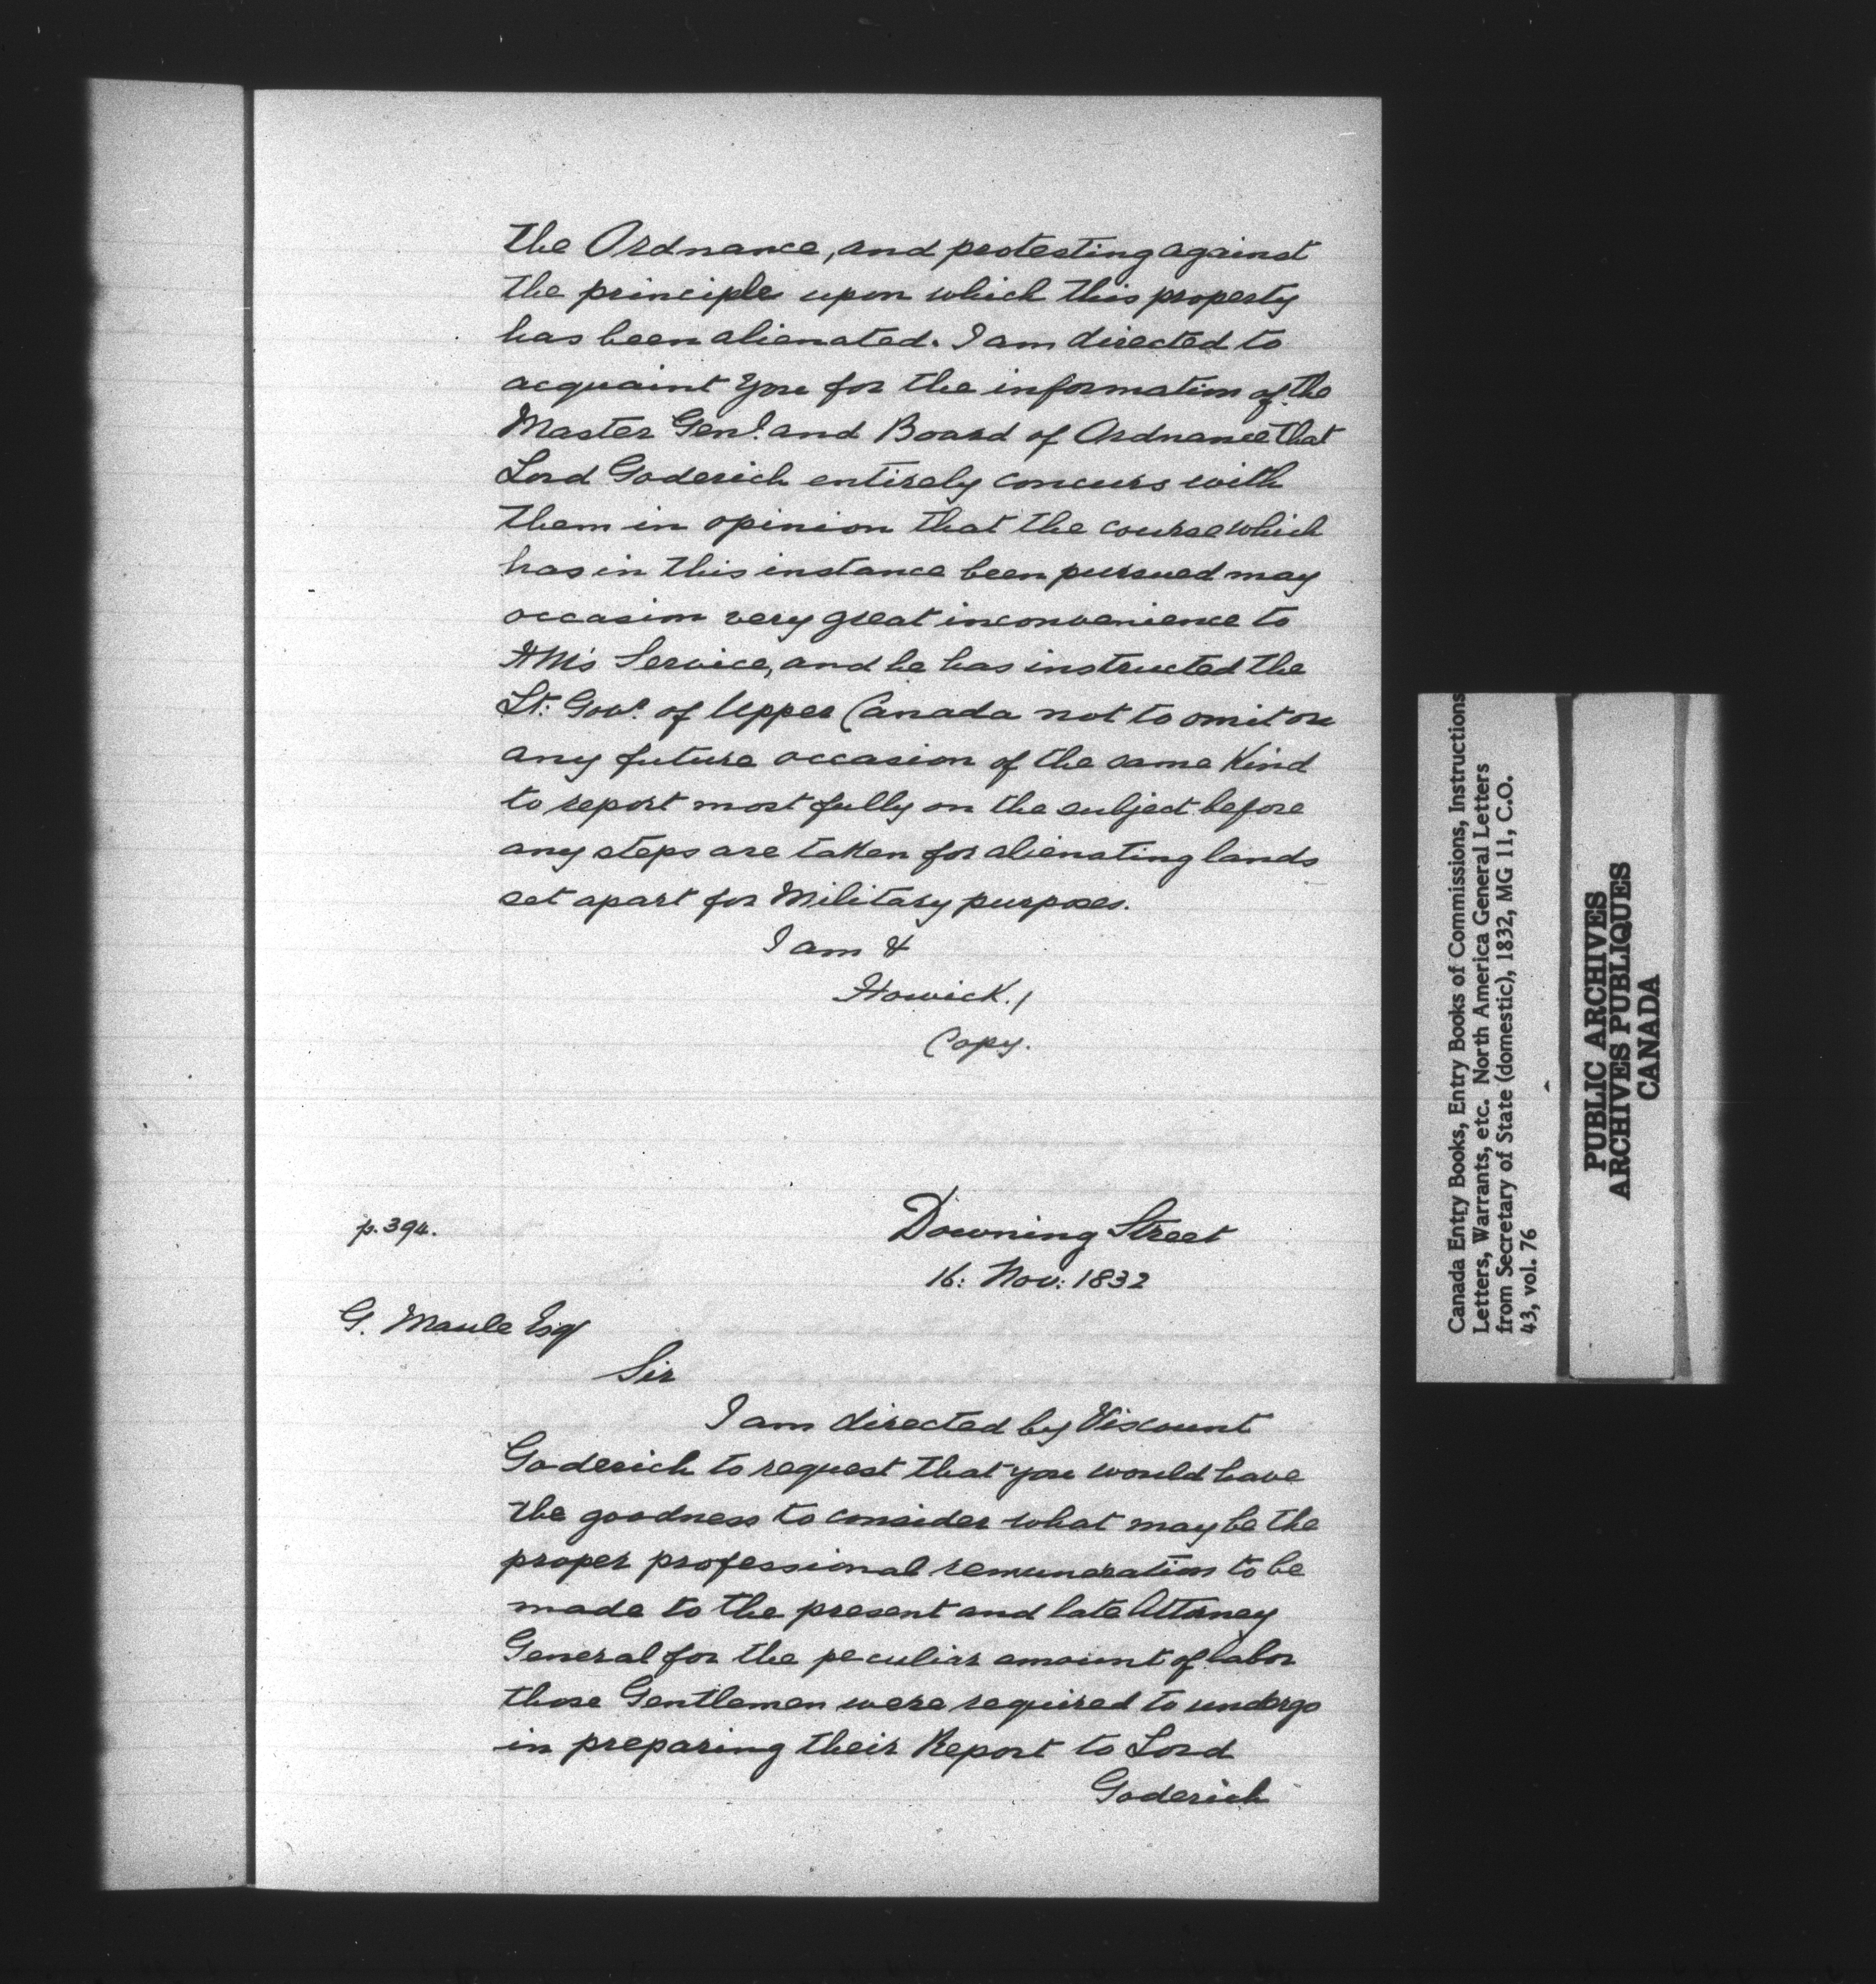 the Ordnance, and protesting against
the principle upon which this property
has been alienated. I am directed to
acquaint you for the information of the
Master Genl. and Board of Ordnance that
Lord Goderich entirely concurs with
them in opinion that the course which
has in this instance been pursued may
occasion very great inconvenience to
HM's Service, and he has instructed the
Lt: Govr. of Upper Canada not to omit on
any future occasion of the same kind
to report most fully on the subject before
any steps are taken for alienating lands
set apart for Military purposes.
I am &
Howick./
Copy.
p. 394.
Downing Street
16: Nov: 1832
G. Maule Esq
Sir
I am directed by Viscount
Goderich to request that you would have
the goodness to consider what may be the
proper professional remuneration to be
made to the present and late Attorney
General for the peculiar amount of labor
those Gentlemen were required to undergo
in preparing their Report to Lord
Goderich
Canada Entry Books, Entry Books of Commissions, Instructions
Letters, Warrants, etc. North America General Letters
from Secretary of State (domestic), 1832, MG 11, C.O.
43, vol. 76
PUBLIC ARCHIVES
ARCHIVES PUBLIQUES
CANADA